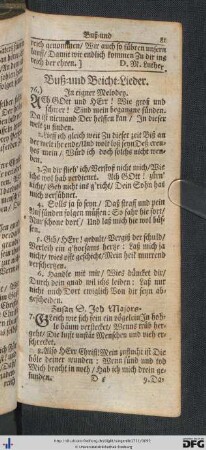 Buß-und
81
reich genommen/ Wir auch so führen unsern
lauff/ Damit wir endlich kommen Zu dir ins
reich der ehren. ] D. M. Luther.
Buß-und Beicht-Lieder.
In eigner Melodey.
76.) ACh GOtt und HErr! Wie groß und
schwer! Sind mein begangne sünden.
Da ist niemand Der helffen kan/ In dieser
welt zu finden.
2. Lieff ich gleich weit Zu dieser zeit Biß an
der welt ihr ende/ Und wolt los seyn Des creu-
tzes mein/ Würd ich doch solches nicht wen-
den.
3. Zu dir flieh' ich/ Verstoß nicht mich/ Wie
ichs wol hab verdienet. Ach GOtt! zürn'
nicht/ Geh nicht ins g'richt/ Dein Sohn hat
mich versühnet.
4. Solls ja so seyn/ Daß straf und pein
Auf sünden folgen müssen: So fahr hie fort/
Nur schone dort/ Und laß mich hie wol büs-
sen.
5. Gib/ HErr! gedult/ Vergiß der schuld/
Verleih ein g'horsams hertz: Laß mich ja
nicht/ wies oft geschicht/ Mein heil murrend
verscherzen.
6. Handle mit mir/ Wies düncket dir/
Durch dein gnad wil ichs leiden: Laß nur
nicht mich Dort ewiglich Von dir seyn ab-
gescheiden.
Zusatz D. Joh. Majors.
7. Gleich wie sich fein ein vögelein In hoh-
le bäum verstecket/ Wenns trüb her-
geht/ Die luft unstät Menschen und vieh er-
schrecket:
8. Also HErr Christ! Mein zuflucht ist Die
höle deiner wunden: Wenn sünd und tod
Mich bracht in noth/ Hab ich mich drein ge-
funden.
D
9. Da-